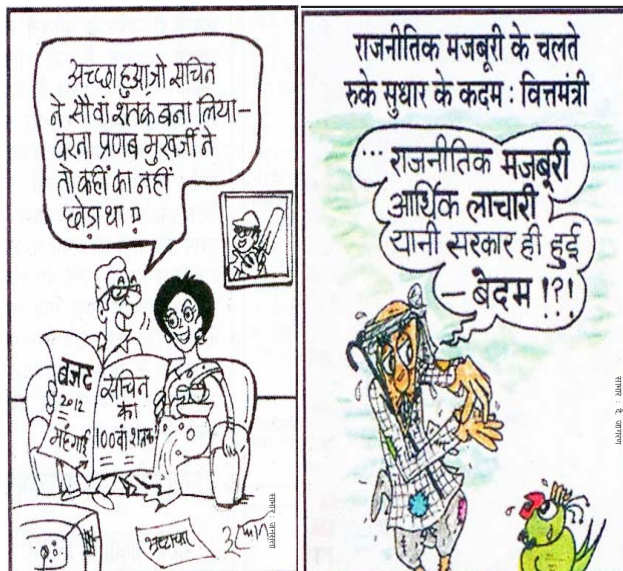 अच्छा हुआ जो सचिन
ने सौवां शतक बना लिया-
वरना प्रणब मुखर्जी ने
तो कहीं का नहीं
छोड़ा था !!
बजट
2012
मंहगाई
सचिन
का
100वां शतक
साभार : जागरण
राजनीतिक मजबूरी के चलते
रुके सुधार के कदम : वित्तमंत्री
... राजनीतिक मजबूरी
आर्थिक लाचारी
यानी सरकार ही हुई
- बेदम !?!
साभार : दै. जागरण